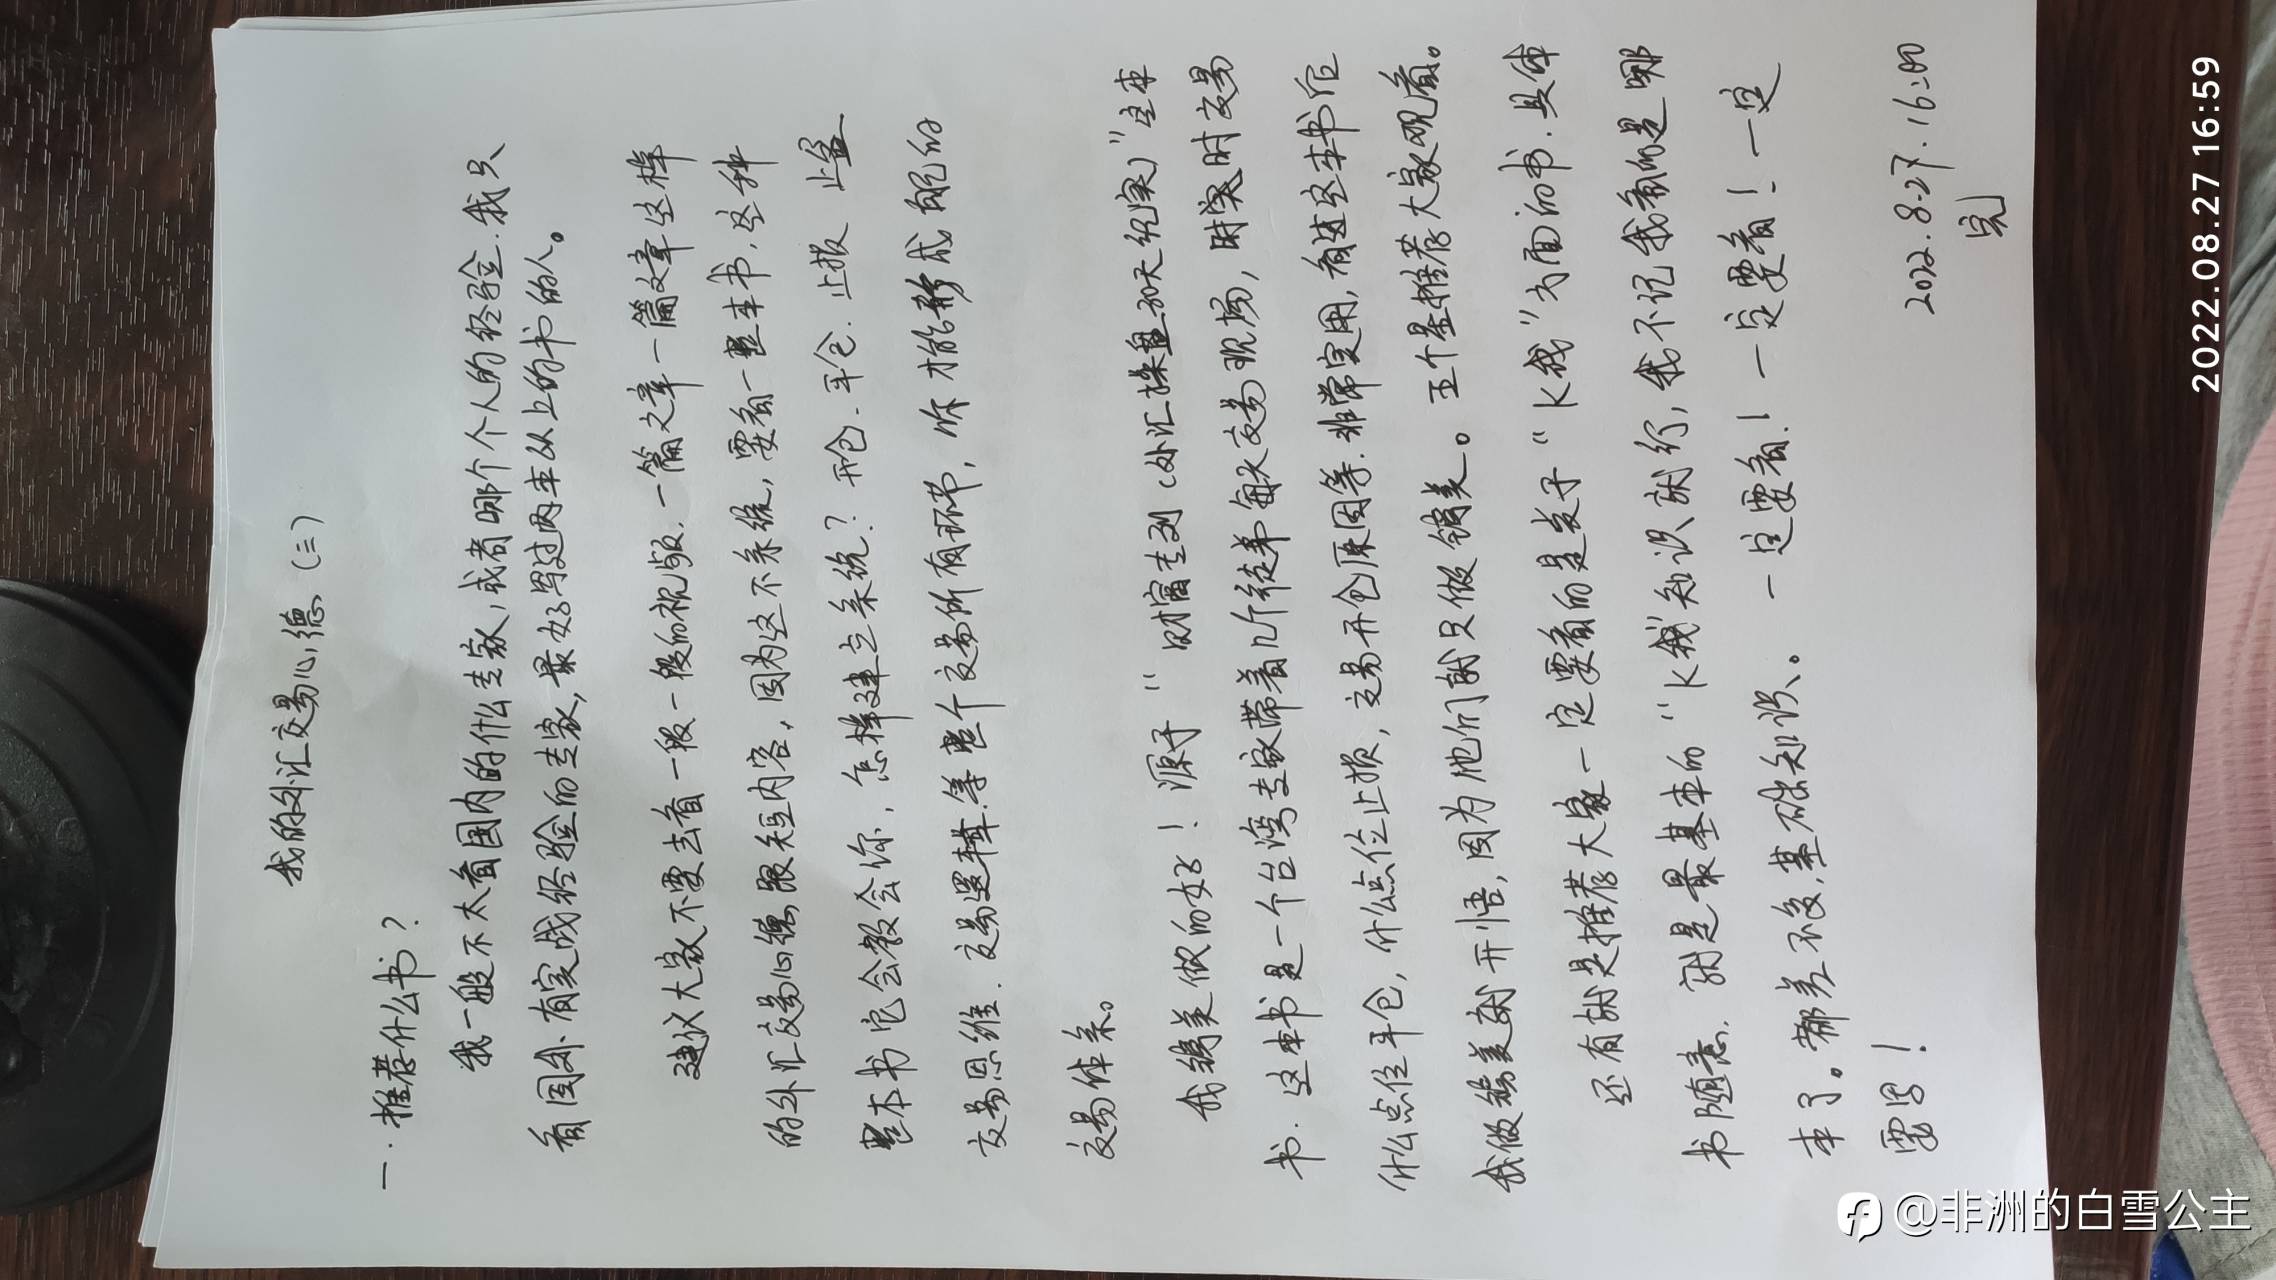 我的外汇交易心德（三）
一.推荐什么书？
我一般不太看国内的什么专家，或者哪个个人的经验.我只
看国外有实战经验的专家，最好写过两本以上的书的人。
建议大家不要去看一般一般的视频.一篇文章一篇文章这样
的外汇交易心德.跟短内容，因为这不系统，要看一整本书，这种
整本书它会教会你，怎样建立系统？开仓.平仓.止损 止盈
交易思维.交易逻辑.等整个交易所有环节，你才能形成自己的
交易体系。
我镑美做的好！源于“财富专列《外汇操盘30天纪实》”这本
书.这本书是一个台湾专家带着几个徒弟每天交易现场，时实时交易
什么点位平仓，什么点位止损，交易开仓原因等.非常实用，看过这本书后
我做镑美就开悟，因为他们就只做镑美。五个星推荐大家观看。
还有就是推荐大家一定要看的是关于“K线”方面的书.具体
书随意.就是最基本的“K线”知识就行，我不记我看的是哪
本了。都差不多.基础知识。一定要看！一定要看！一定
要写！
2022.8.27.16:00
完
2022.08.27 16:59
@非洲的白雪公主